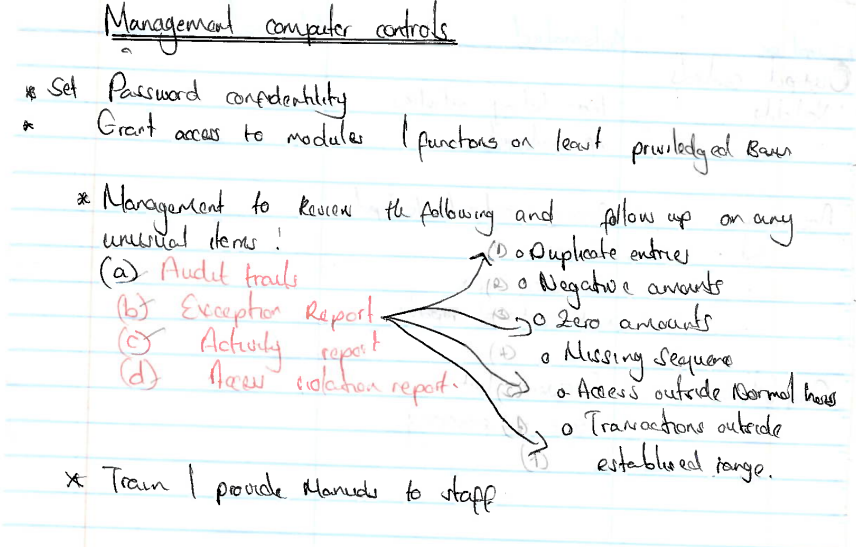 Management computer controls
* Set Password confidentility
* Grant access to modules / functions on least priviledged Basis
* Management to Review the following and follow up on any
unusual items :
(a) Audit trails
(b) Exception Report
(c) Activity report
(d) Access violation report.
(1) o Duplicate entries
(2) o Negative amounts
(3) o Zero amounts
(4) o Missing Sequence
o Access outside Normal hours
o Transactions outside
(7) established range.
* Train / provide Manuals to staff